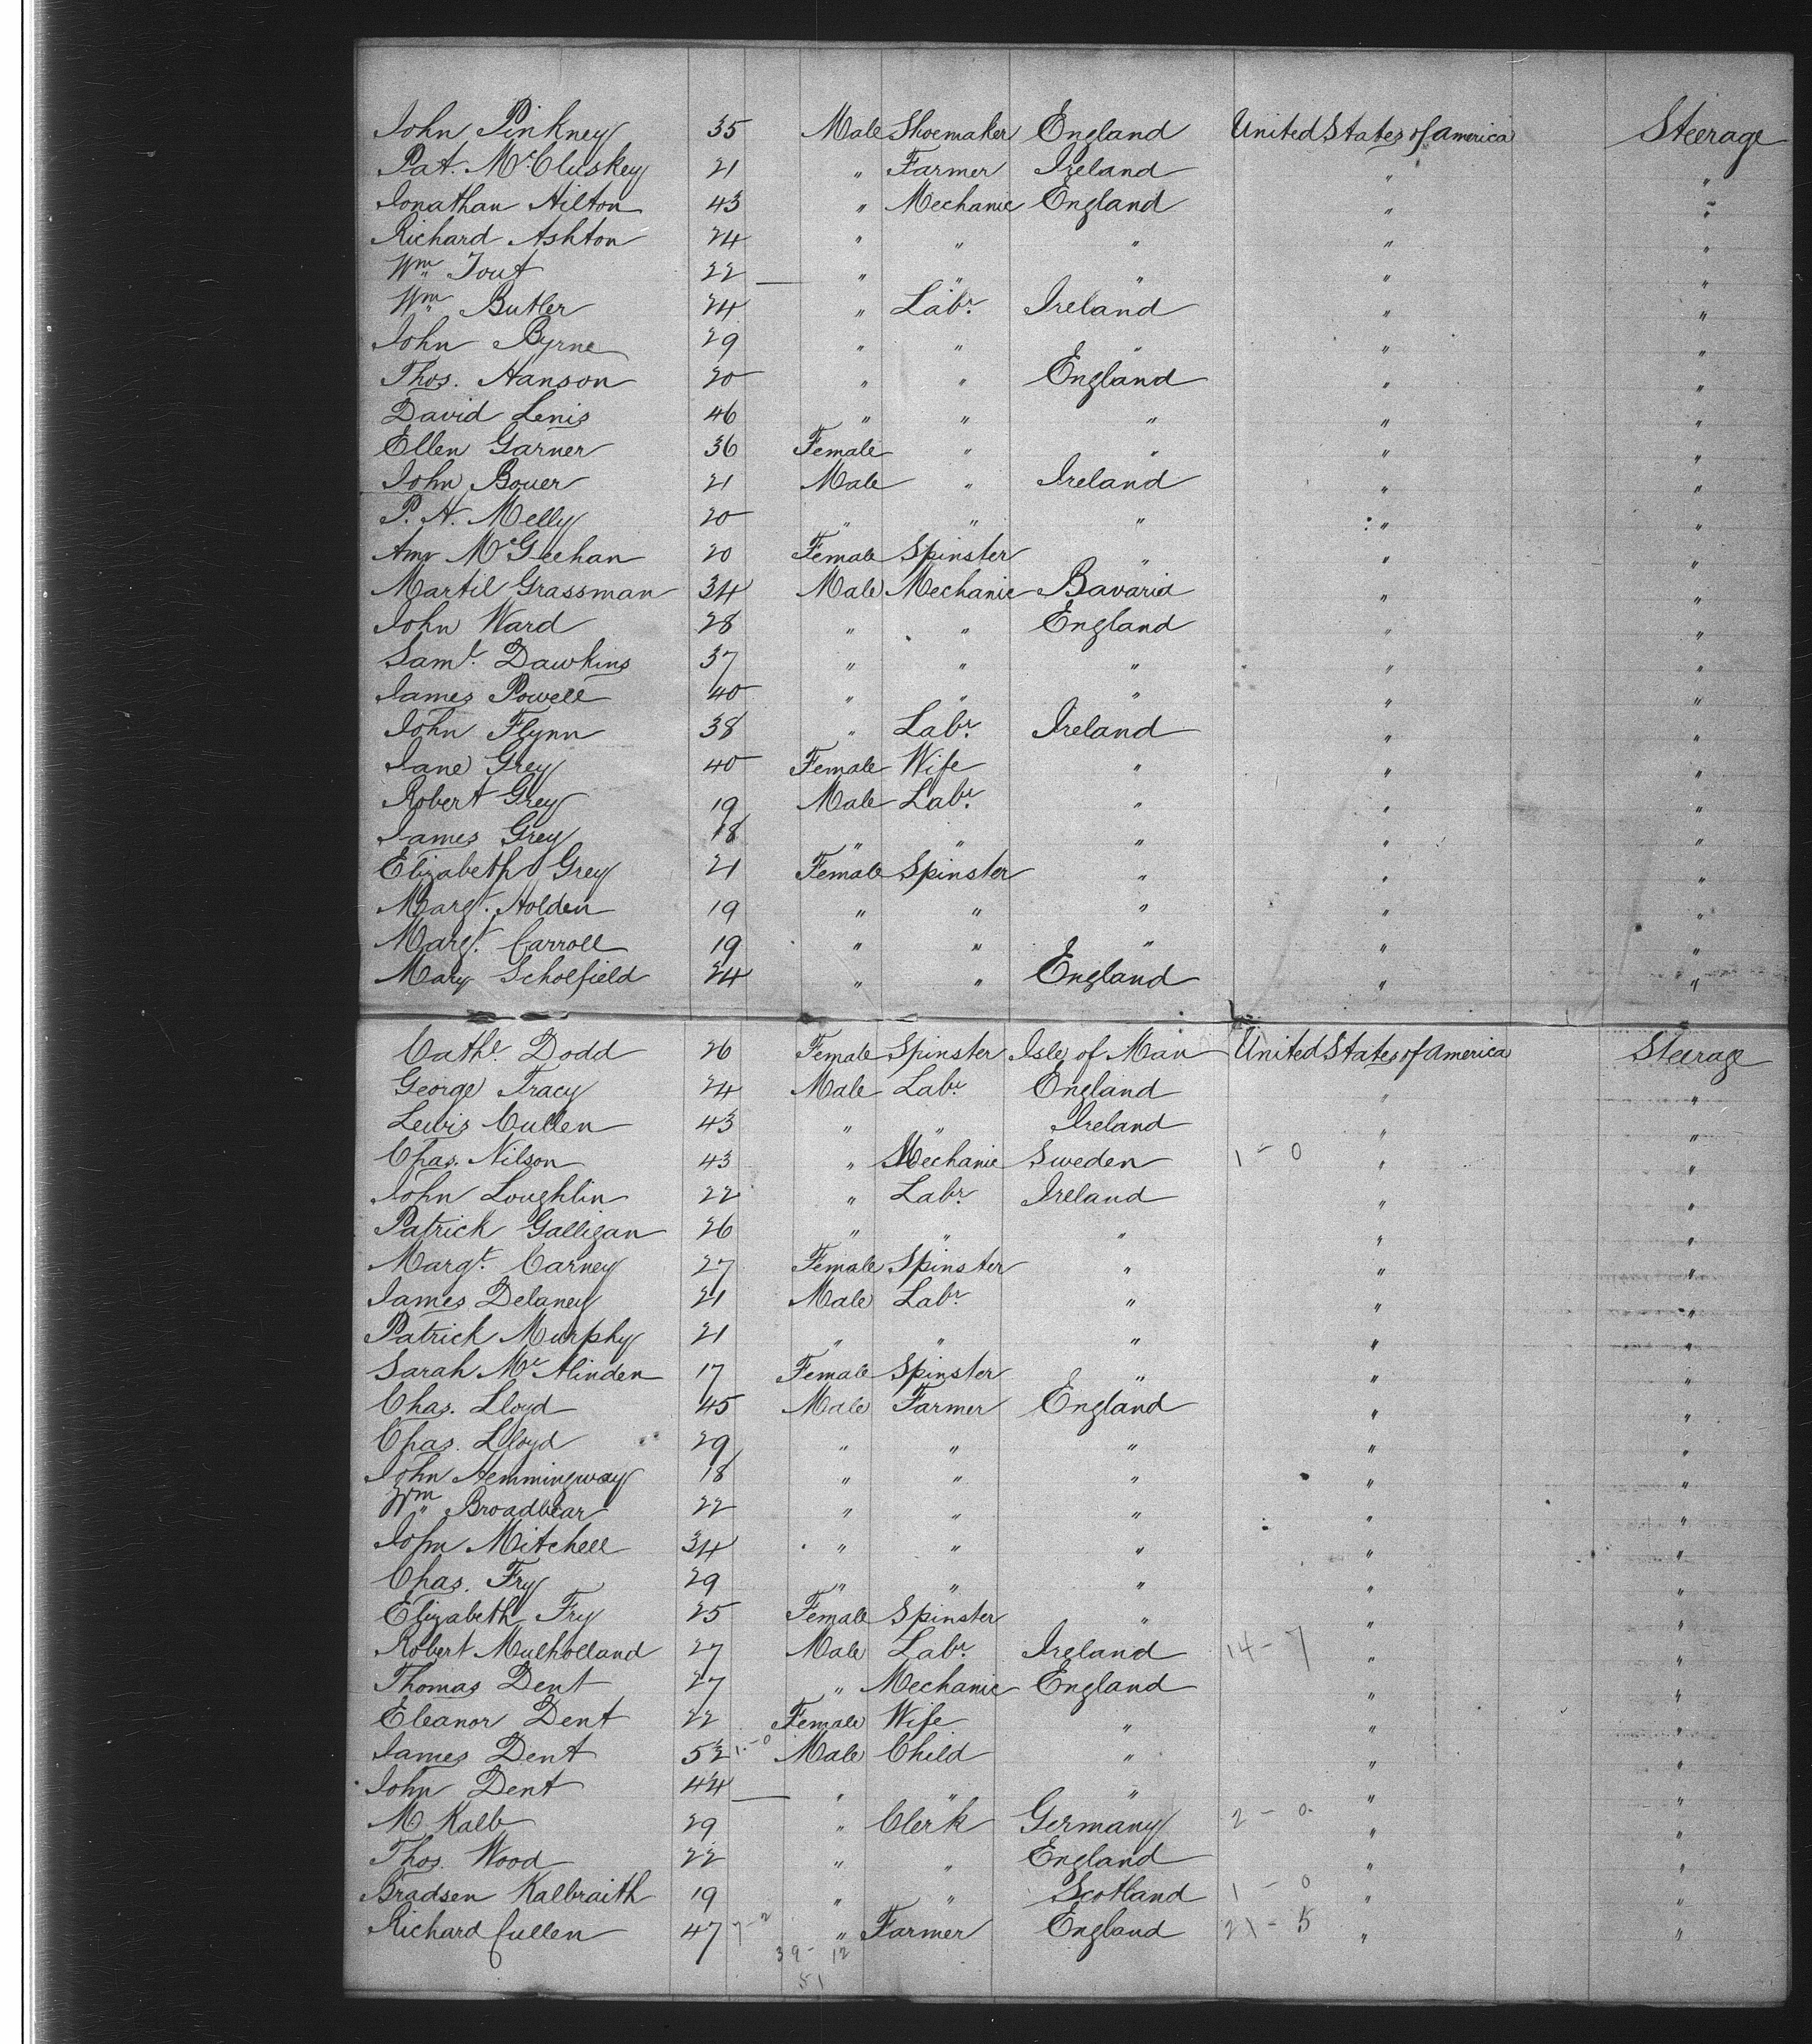 John Pinkney 35 Male Shoemaker England United States of America Steerage
Pat. McCluskey 21 " Farmer Ireland " "
Jonathan Hilton 43 " Mechanic England " "
Richard Ashton 24 " " " " "
Wm Tout 22 " " " " "
Wm Butler 24 " Labr. Ireland " "
John Byrne 29 " " " " "
Thos. Hanson 20 " " England " "
David Lenis 46 " " " " "
Ellen Garner 36 Female " " " "
John Bouer 21 Male " Ireland " "
P. H. Melly 20 " " " " "
Ann McGeehan 20 Female Spinster " " "
Martil Grassman 34 Male Mechanic Bavaria " "
John Ward 28 " " England " "
Saml. Dawkins 37 " " " " "
James Powell 40 " " " " "
John Flynn 38 " Labr. Ireland " "
Jane Grey 40 Female Wife " " "
Robert Grey 19 Male Labr. " " "
James Grey 18 " " " " "
Elizabeth Grey 21 Female Spinster " " "
Margt. Holden 19 " " " " "
Margt. Carroll 19 " " " " "
Mary Scholfield 24 " " England " "
Cathe. Dodd 26 Female Spinster Isle of Man United States of America Steerage
George Tracy 24 Male Labr. England " "
Lewis Cullen 43 " " Ireland " "
Chas. Nilson 43 " Mechanic Sweden 1 - 0 " "
John Loughlin 22 " Labr. Ireland " "
Patrick Galligan 26 " " " " "
Margt. Carney 27 Female Spinster " " "
James Delaney 21 Male Labr. " " "
Patrick Murphy 21 " " " " "
Sarah Mc Alinden 17 Female Spinster " " "
Chas. Lloyd 45 Male Farmer England " "
Chas. Lloyd 29 " " " " "
John Hemmingway 18 " " " " "
Wm Broadbear 22 " " " " "
John Mitchell 34 " " " " "
Chas. Fry 29 " " " " "
Elizabeth Fry 25 Female Spinster " " "
Robert Mulholland 27 Male Labr. Ireland 14 - 7 " "
Thomas Dent 27 " Mechanic England " "
Eleanor Dent 22 Female Wife " " "
James Dent 52 1 - 0 Male Child " " "
John Dent 44 " " " " "
M Kalb 29 " Clerk Germany 2 - 0 " "
Thos. Wood 22 " " England " "
Bradsen Kalbraith 19 " " Scotland 1 - 0 " "
Richard Cullen 47 7 - 2 " Farmer England 21 - 5 " "
39 - 12
51